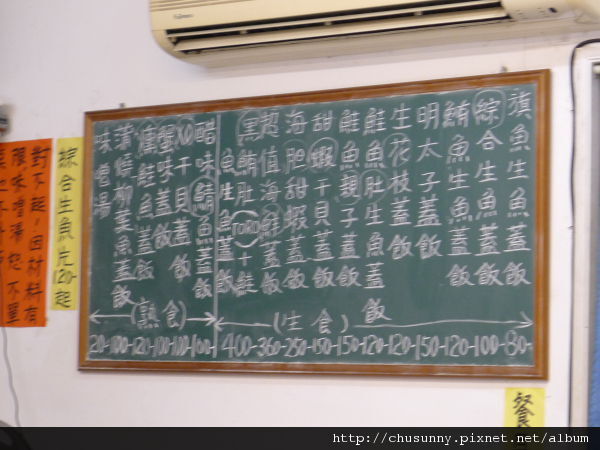 旗魚生魚蓋飯
綜合生魚蓋飯
鮪魚生魚蓋飯
明太子蓋飯
生花枝蓋飯
鮭魚肚生魚蓋飯
鮭魚親子蓋飯
甜蝦干貝蓋飯
海胆甜蝦蓋飯
超值海鮮蓋飯
黑鮪肚(TORO)+鮭
魚生魚蓋飯
醋味鯖魚蓋飯
XO干貝蓋飯
蟹味蓋飯
燻鮭魚蓋飯
蒲燒柳葉魚蓋飯
味噌湯
(熟食)
(生食)
20-100-120-100-100-100-400-360-250-150-150-120-120-150-120-100-80-
綜合生魚片120-起
對不起!因材料有
限味噌湯恕不單
餐
http://chusunny.pixnet.net/album